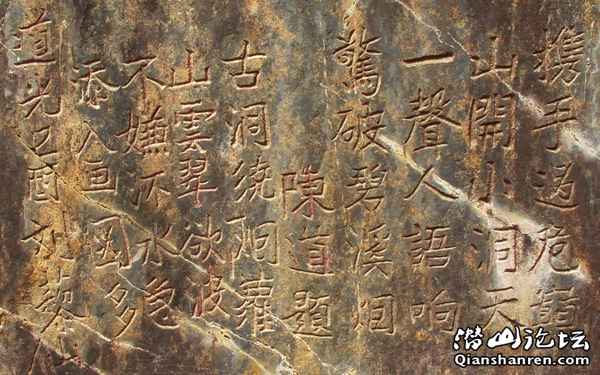 携手過危
山開小洞天
一聲人語响
驚破碧溪烟
陳道題
古洞繞蘿
山雲翠欲波
不嫌水急
添入画圖多
道光己酉刘黎
潜山论坛
Qianshanren.com